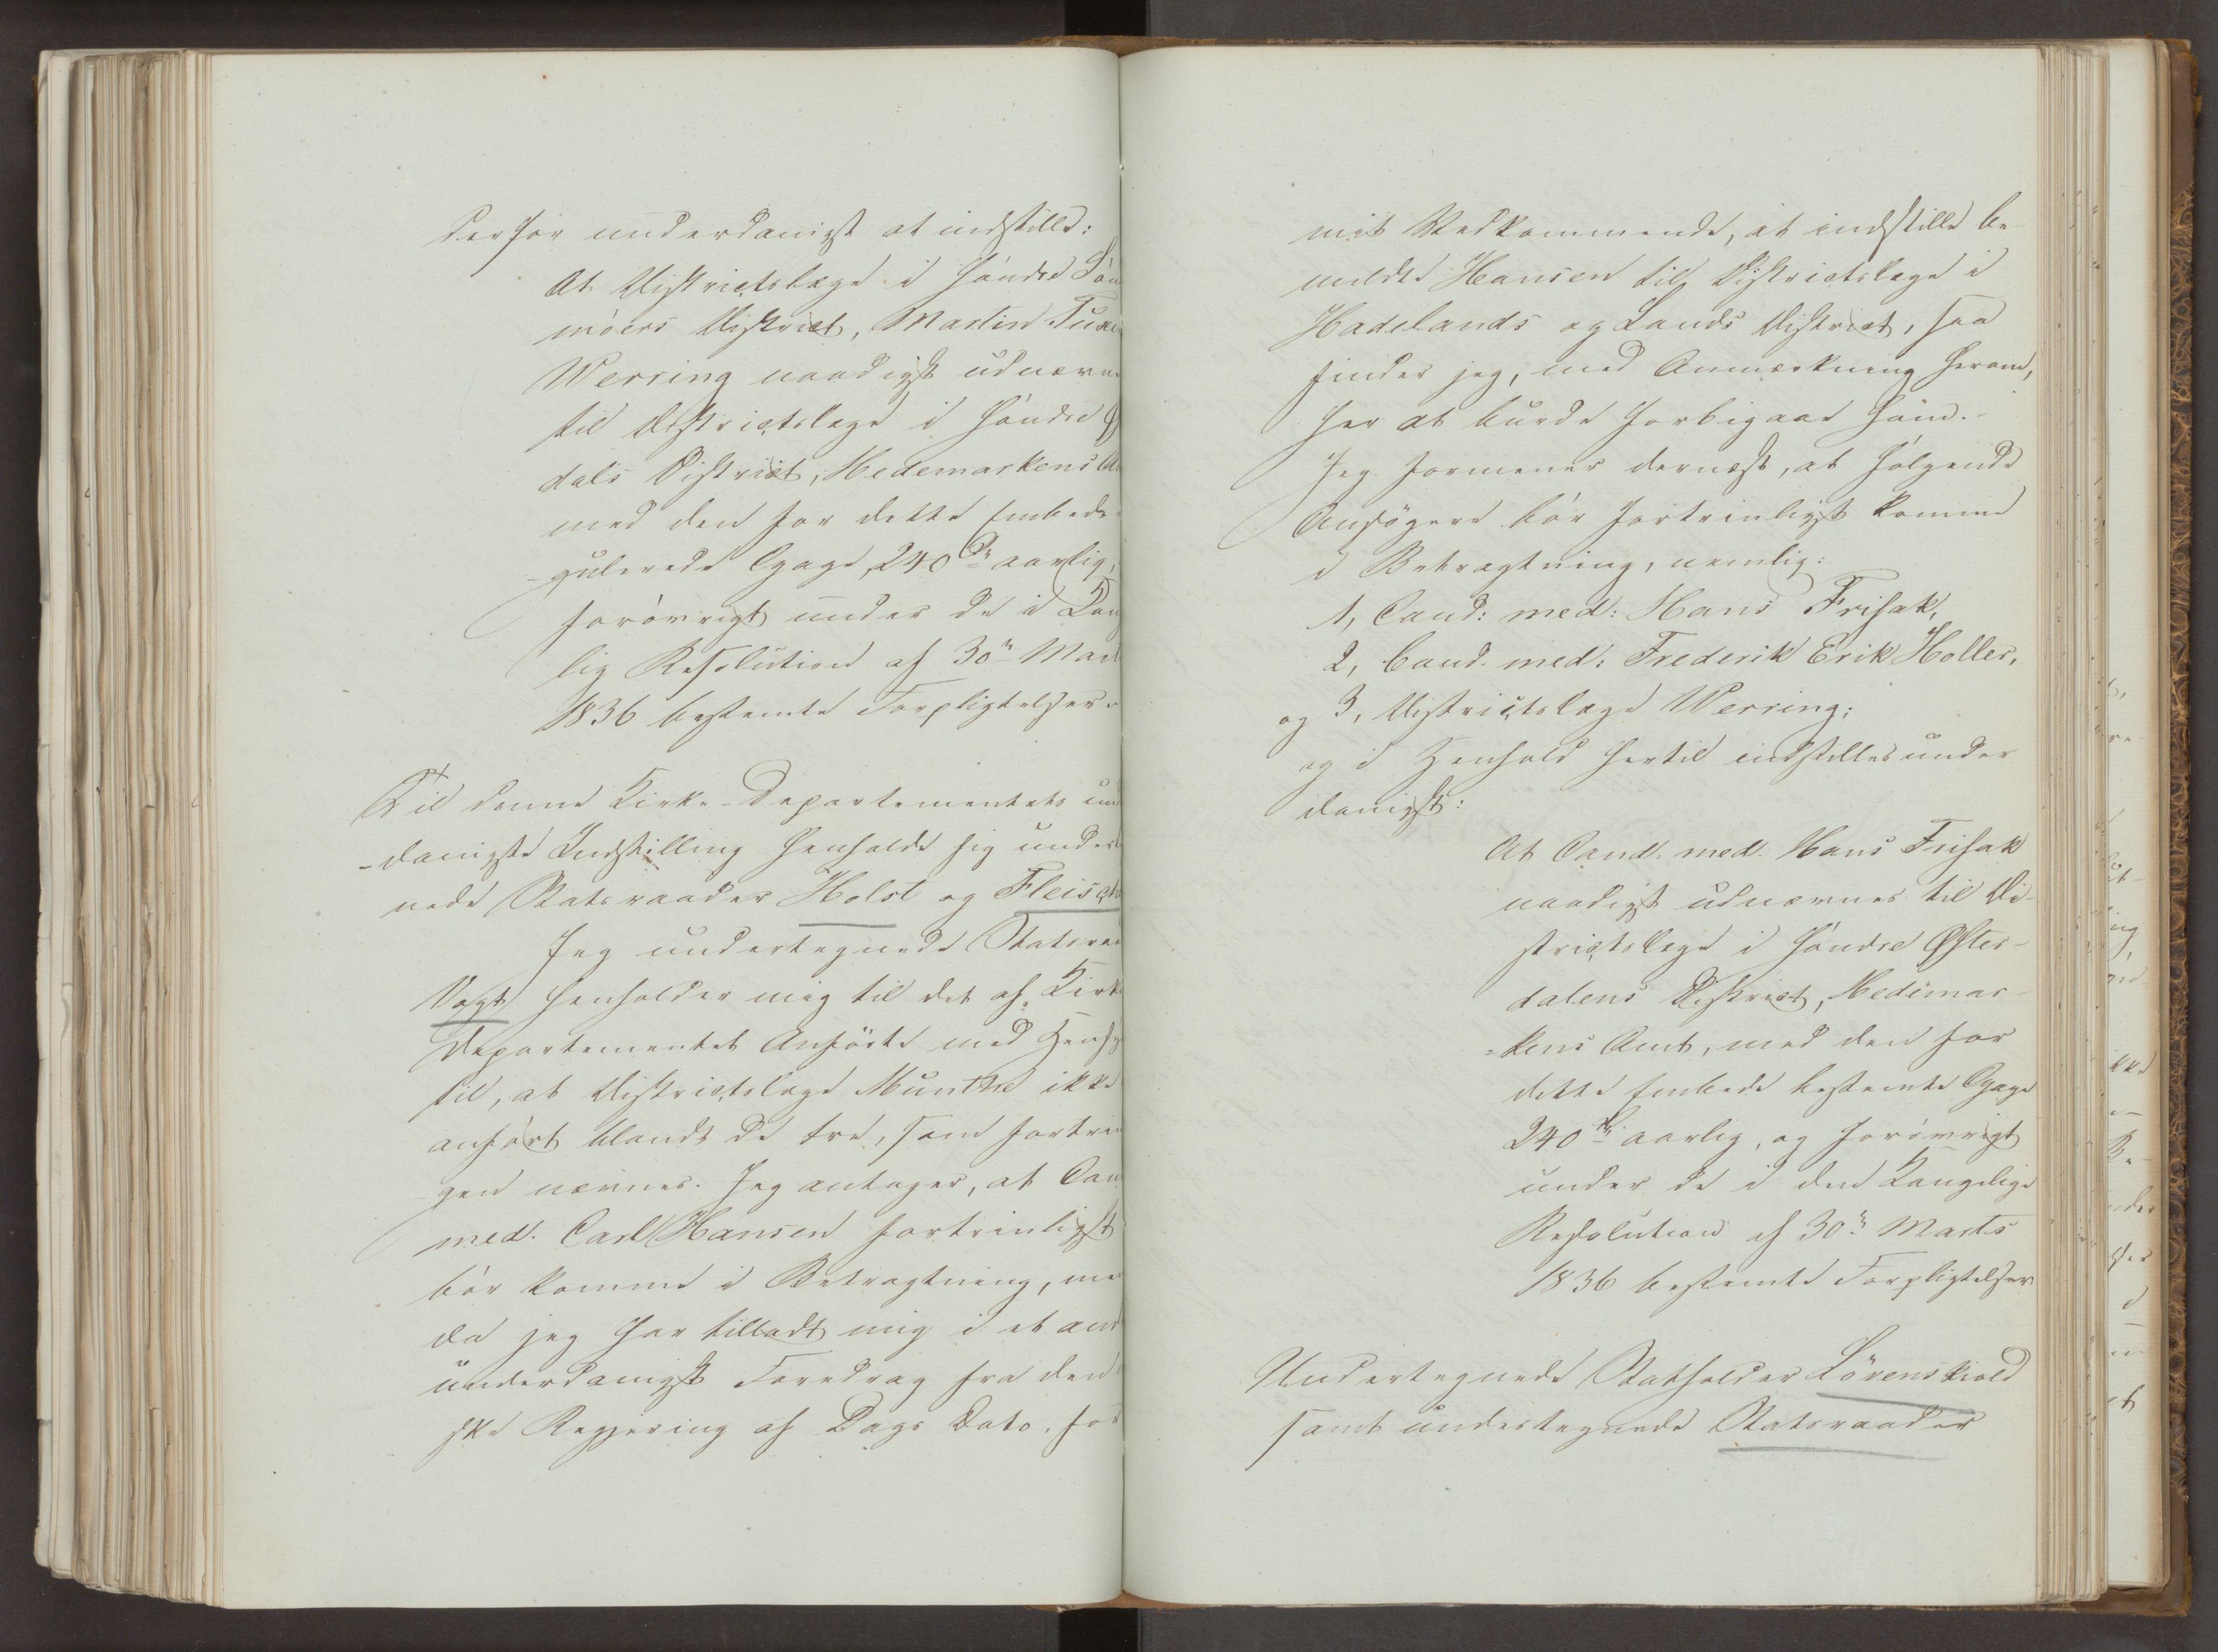 derfor underdanigst at indstille:
At Districtslæge i Søndre Sön
möers District, Martin Tuxe
Werring naadigst udnævne
til Districtslæge i Søndre Ø
dals District, Hedemarkens A
med den for dette Embede
gulerede Gage, 240 Spd aarlig,
forøvrigt under de i Kon
lig Resolution af 30te Mart
1836 bestemte Forpligtelser.
Til denne Kirke-Departementets und
-danigste Indstilling henholde sig under
nede Statsraader Holst og Fleisch
Jeg undertegnede Statsraa
Vogt henholder mig til det af Kirke
Departementet Anførte med Hensy
til, at Districtslæge Munthe ikke
anført blandt de tre, som fortrin
gen nævnes. Jeg antager, at Can
med. Carl Hansen fortrinligst
bør komme i Betragtning, men
da jeg har tilladt mig i et and
underdanigst Foredrag fra den
ske Regjering af Dags Dato, for
mit Vedkommende, at indstille be-
meldte Hansen til Districtslæge i
Hadelands og Lands District, saa
finder jeg, med Anmærkning herom,
her at burde forbigaae ham.
Jeg formener dernæst, at følgende
Ansøgere bør fortrinligst komme
i Betragtning, nemlig:
1, Cand: med: Hans Frisak,
2, Cand. med: Frederik Erik Holler,
og 3, Districtslæge Werring;
og i Henhold hertil indstilles under
danigst:
At Cand. med. Hans Frisak
naadigst udnævnes til Di-
strictslæge i Søndre Øster-
dalens District, Hedemar-
-kens Amt, med den for
dette Embede bestemte Gage
240 Spd aarlig, og forøvrigt
under de i den Kongelige
Resolution af 30te Marts
1836 bestemte Forpligtelser
Undertegnede Statholder Lövenskiold
samt undertegnede Statsraader